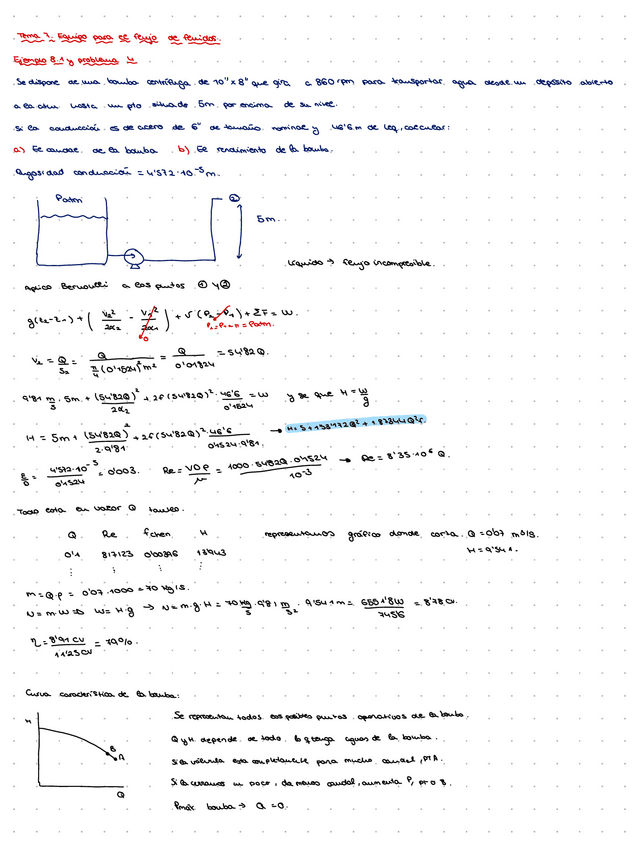 Tema 7. Equipo para el flujo de fluidos.
Ejemplo 8.1 y problema 4
Se dispone de una bomba centrífuga de 10"x8" que gira a 860 rpm para transportar agua desde un depósito abierto
a la atm hasta un pto situado 5m por encima de su nivel.
Si la conducción es de acero de 6" de tamaño nominal y 46'6 m de Leq, calcular:
a) El caudal de la bomba b) El rendimiento de la bomba.
Rugosidad conducción = 4'572·10⁻⁵ m.
Patm
②
5m.
Líquido → flujo incompresible.
Aplico Bernoulli a los puntos ① y ②
g(z₂-z₁) + ( V₂²/2α₂ - V₁²/2α₁ ) + V (P₂-P₁) + ΣF = W.
0
P₂=P₁= = Patm.
V₂ = Q/S₂ = Q/(π/4 (0'1524)² m²) = Q/0'01824 = 54'82 Q.
9'81 m/s · 5m + (54'82Q)²/2α₂ + 2f (54'82Q)² · 46'6/0'1524 = W y se que H = W/g
H = 5m + (54'82Q)²/2·9'81 + 2f (54'82Q)² · 46'6/0'1524·9'81. → H = 5 + 153'172Q² + 1'87344Q²f.
ε/D = 4'572·10⁻⁵/0'1524 = 0'0003. Re = VDρ/μ = 1000·54'82Q·0'1524/10⁻³ → Re = 8'35·10⁶ Q.
Todo esta en valor Q tanteo.
Q Re fchen H
0'1 817123 0'00396 13'943
⋮ ⋮ ⋮ ⋮
representamos gráfico donde corta. Q = 0'07 m³/s.
H = 9'541.
m = Q·ρ = 0'07·1000 = 70 kg/s.
N = m·W ⇒ W = H·g → N = m·g·H = 70 kg/s · 9'81 m/s² · 9'541 m = 6551'8W/745'6 = 8'78 CV.
η = 8'91 CV/11'25 CV = 79%.
Curva característica de la bomba:
H
B
A
Q
Se representan todos los posibles puntos operativos de la bomba.
Q y H depende de todo lo q tenga aguas de la bomba.
Si la válvula esta completamente para mucho caudal, pt A.
Si la cerramos un poco, da menos caudal, aumenta P, pto B.
Pmáx bomba → Q = 0.